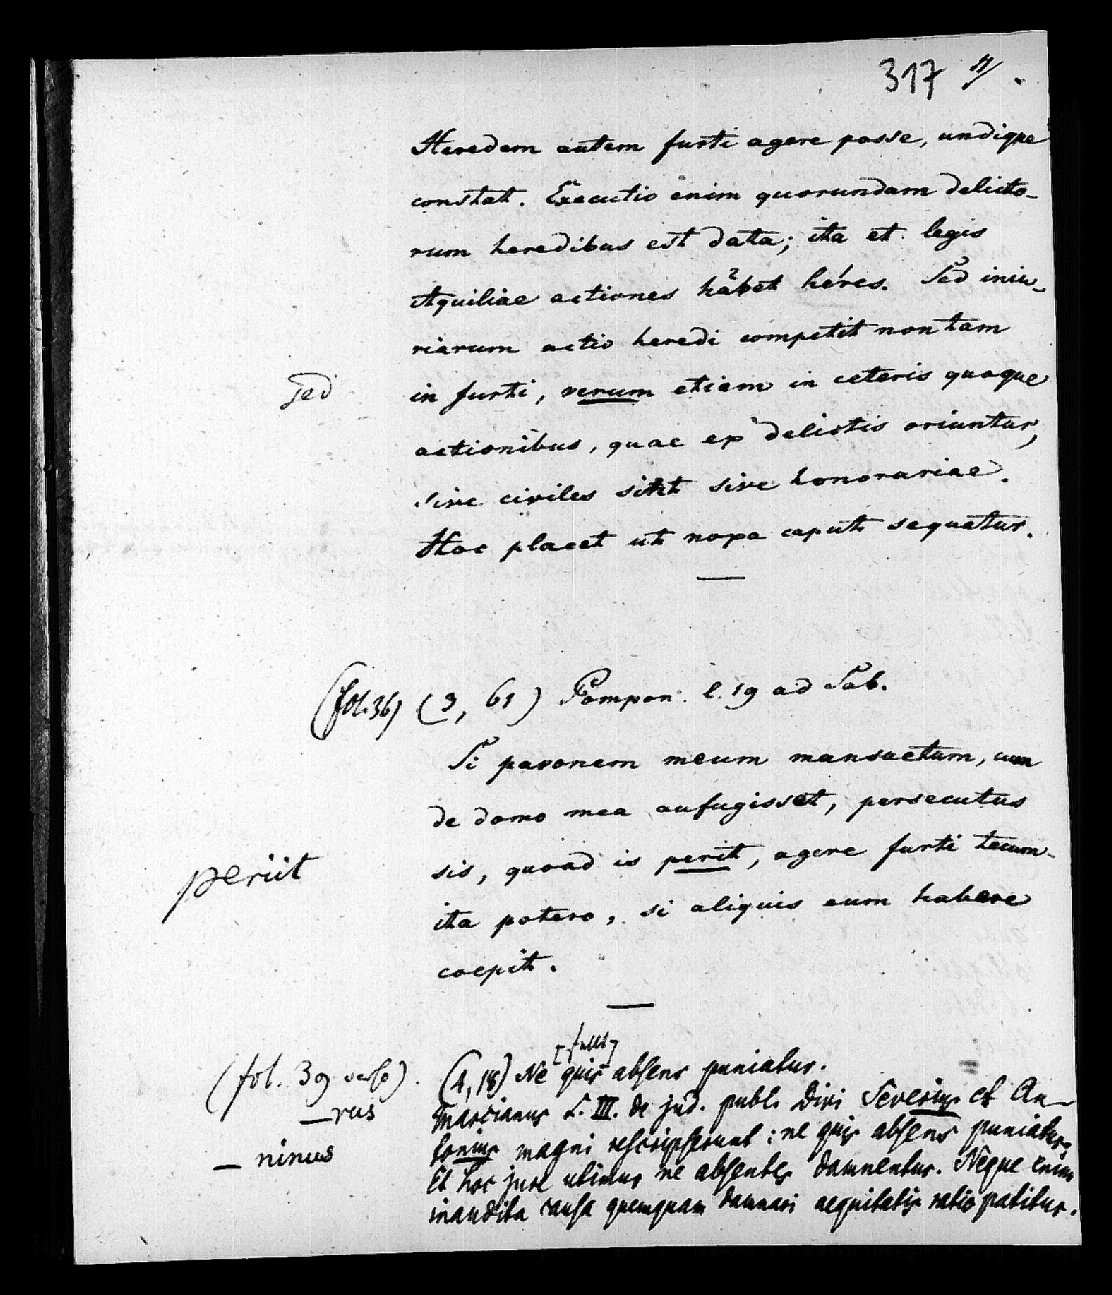 317
Heredem autem furti agere posse, undique
constat. Executio enim quorundam delicto-
rum heredibus est data; ita et legis
Aquiliae actiones habet heres. Sed iniu-
riarum actio heredi competit non tam
sed
in furti, verum etiam in ceteris quoque
actionibus, quae ex delictis oriuntur,
sive civiles sint sive honorariae.
Hoc placet ut noxa caput sequatur.
(fol. 36) (3, 61) Pompon. l. 19 ad Sab.
Si pavonem meum mansuetum, cum
de domo mea aufugisset, persecutus
periit
sis, quoad is perit, agere furti tecum
ita potero, si aliquis eum habere
coepit.
(fol. 39 verso). (4, 18) Ne quis absens puniatur.
_rus
Marcianus L. III. de jud. publ. Divi Severius et An-
_ninus
tonius magni rescripserunt: ne quis absens puniatur.
Et hoc jure utimur ne absentes damnentur. Neque enim
inaudita causa quemquam damnari aequitatis ratio patitur.